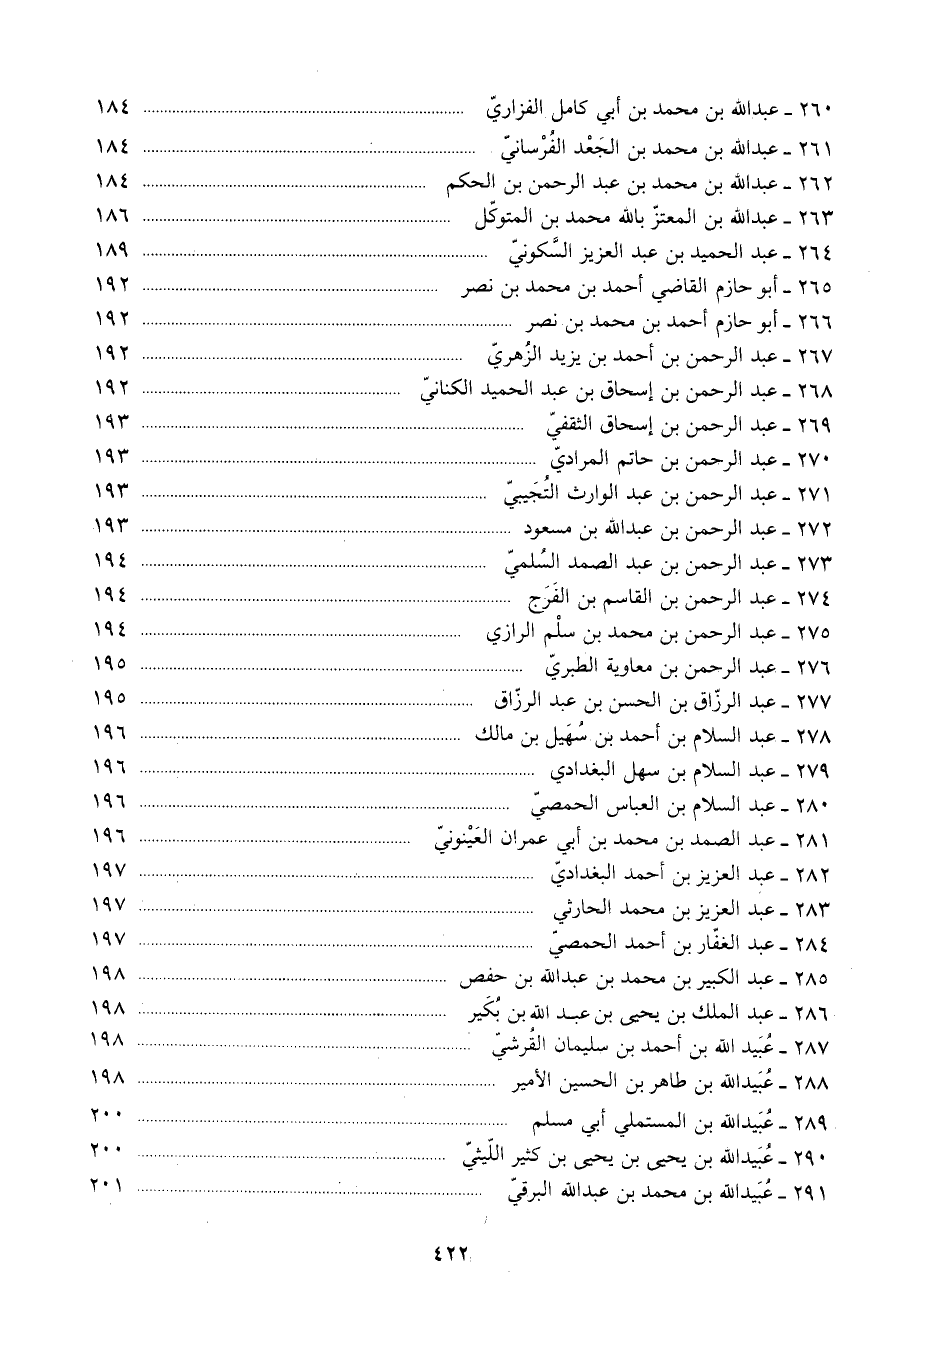 ٢٦٠ ـ عبدالله بن محمد بن أبي كامل الفزاريّ ........ ١٨٤
٢٦١ ـ عبدالله بن محمد بن الجَعْد الفُرْسانيّ ........ ١٨٤
٢٦٢ ـ عبدالله بن محمد بن عبد الرحمن بن الحكم ........ ١٨٤
٢٦٣ ـ عبدالله بن المعتزّ بالله محمد بن المتوكّل ........ ١٨٦
٢٦٤ ـ عبد الحميد بن عبد العزيز السَّكونيّ ........ ١٨٩
٢٦٥ ـ أبو حازم القاضي أحمد بن محمد بن نصر ........ ١٩٢
٢٦٦ ـ أبو حازم أحمد بن محمد بن نصر ........ ١٩٢
٢٦٧ ـ عبد الرحمن بن أحمد بن يزيد الزُهريّ ........ ١٩٢
٢٦٨ ـ عبد الرحمن بن إسحاق بن عبد الحميد الكنانيّ ........ ١٩٢
٢٦٩ ـ عبد الرحمن بن إسحاق الثقفيّ ........ ١٩٣
٢٧٠ ـ عبد الرحمن بن حاتم المراديّ ........ ١٩٣
٢٧١ ـ عبد الرحمن بن عبد الوارث التُجَيبيّ ........ ١٩٣
٢٧٢ ـ عبد الرحمن بن عبدالله بن مسعود ........ ١٩٣
٢٧٣ ـ عبد الرحمن بن عبد الصمد السُلميّ ........ ١٩٤
٢٧٤ ـ عبد الرحمن بن القاسم بن الفَرَج ........ ١٩٤
٢٧٥ ـ عبد الرحمن بن محمد بن سلْم الرازي ........ ١٩٤
٢٧٦ ـ عبد الرحمن بن معاوية الطبريّ ........ ١٩٥
٢٧٧ ـ عبد الرزّاق بن الحسن بن عبد الرزّاق ........ ١٩٥
٢٧٨ ـ عبد السلام بن أحمد بن سُهَيل بن مالك ........ ١٩٦
٢٧٩ ـ عبد السلام بن سهل البغدادي ........ ١٩٦
٢٨٠ ـ عبد السلام بن العباس الحمصيّ ........ ١٩٦
٢٨١ ـ عبد الصمد بن محمد بن أبي عمران العَيْنونيّ ........ ١٩٦
٢٨٢ ـ عبد العزيز بن أحمد البغداديّ ........ ١٩٧
٢٨٣ ـ عبد العزيز بن محمد الحارثي ........ ١٩٧
٢٨٤ ـ عبد الغفّار بن أحمد الحمصيّ ........ ١٩٧
٢٨٥ ـ عبد الكبير بن محمد بن عبدالله بن حفص ........ ١٩٨
٢٨٦ ـ عبد الملك بن يحيى بن عبد الله بن بُكَير ........ ١٩٨
٢٨٧ ـ عُبَيد الله بن أحمد بن سليمان القُرشيّ ........ ١٩٨
٢٨٨ ـ عُبَيدالله بن طاهر بن الحسين الأمير ........ ١٩٨
٢٨٩ ـ عُبَيدالله بن المستملي أبي مسلم ........ ٢٠٠
٢٩٠ ـ عُبَيدالله بن يحيى بن يحيى بن كثير اللّيثيّ ........ ٢٠٠
٢٩١ ـ عُبَيدالله بن محمد بن عبدالله البرقيّ ........ ٢٠١
٤٢٢